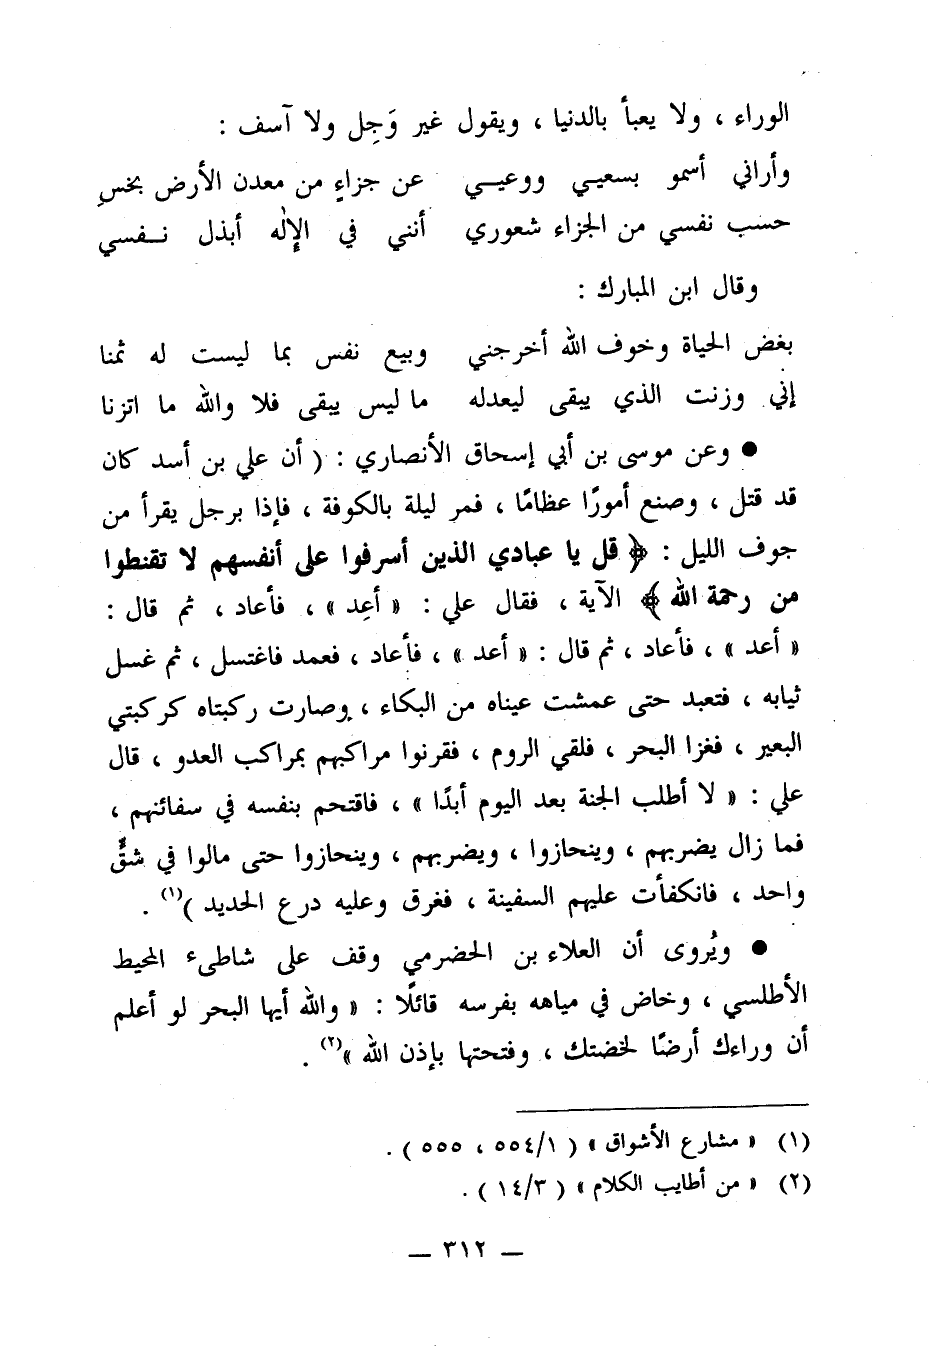 الوراء ، ولا يعبأ بالدنيا ، ويقول غير وَجِل ولا آسف :
وأراني أسمو بسعيـي ووعيـي عن جزاءٍ من معدن الأرض بخسِ
حسب نفسي من الجزاء شعوري أنني في الإلٰه أبذل نـفسي
وقال ابن المبارك :
بغض الحياة وخوف الله أخرجني وبيع نفس بما ليست له ثمنا
إني وزنت الذي يبقى ليعدله ما ليس يبقى فلا والله ما اتزنا
● وعن موسى بن أبي إسحاق الأنصاري : ( أن علي بن أسد كان
قد قتل ، وصنع أمورًا عظامًا ، فمر ليلة بالكوفة ، فإذا برجل يقرأ من
جوف الليل : ﴿ قل يا عبادي الذين أسرفوا على أنفسهم لا تقنطوا
من رحمة الله ﴾ الآية ، فقال علي : « أعِد » ، فأعاد ، ثم قال :
« أعد » ، فأعاد ، ثم قال : « أعد » ، فأعاد ، فعمد فاغتسل ، ثم غسل
ثيابه ، فتعبد حتى عمشت عيناه من البكاء ، وصارت ركبتاه كركبتي
البعير ، فغزا البحر ، فلقي الروم ، فقرنوا مراكبهم بمراكب العدو ، قال
علي : « لا أطلب الجنة بعد اليوم أبدًا » ، فاقتحم بنفسه في سفائنهم ،
فما زال يضربهم ، وينحازوا ، ويضربهم ، وينحازوا حتى مالوا في شقٍّ
واحد ، فانكفأت عليهم السفينة ، فغرق وعليه درع الحديد )(١) .
● ويُروى أن العلاء بن الحضرمي وقف على شاطىء المحيط
الأطلسي ، وخاض في مياهه بفرسه قائلًا : « والله أيها البحر لو أعلم
أن وراءك أرضًا لخضتك ، وفتحتها بإذن الله »(٢) .
(١) « مشارع الأشواق » ( ٥٥٤/١ ، ٥٥٥ ) .
(٢) « من أطايب الكلام » ( ١٤/٣ ) .
— ٣١٢ —